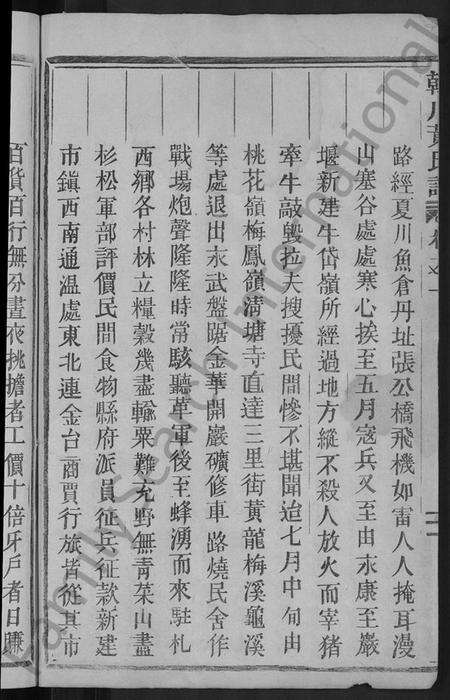 路經夏川魚倉丹址張公橋飛機如雷人人掩耳漫
山塞谷處處寒心挨至五月寇兵又至由永康至嚴
堰新建牛岱嶺所經過地方縱不殺人放火而宰猪
牽牛敲毀拉夫搜擾民間慘不堪聞迨七月中旬由
桃花嶺梅鳳嶺清塘寺直達三里街黃龍梅溪龜溪
等處退出永武盤踞金華開巖礦修車路燒民舍作
戰場炮聲隆隆時常駭聽革軍後至蜂湧而來駐札
西鄉各村林立糧榖幾盡輸粟難充野無青菜山盡
杉松軍部評價民間食物縣府派員征兵征款新建
市鎮西南通温處東北連金台商賈行旅皆從其市
百貨百行無分晝夜挑擔者工價十倍牙戶者日賺
黃氏譜 卷之一
Family Search International